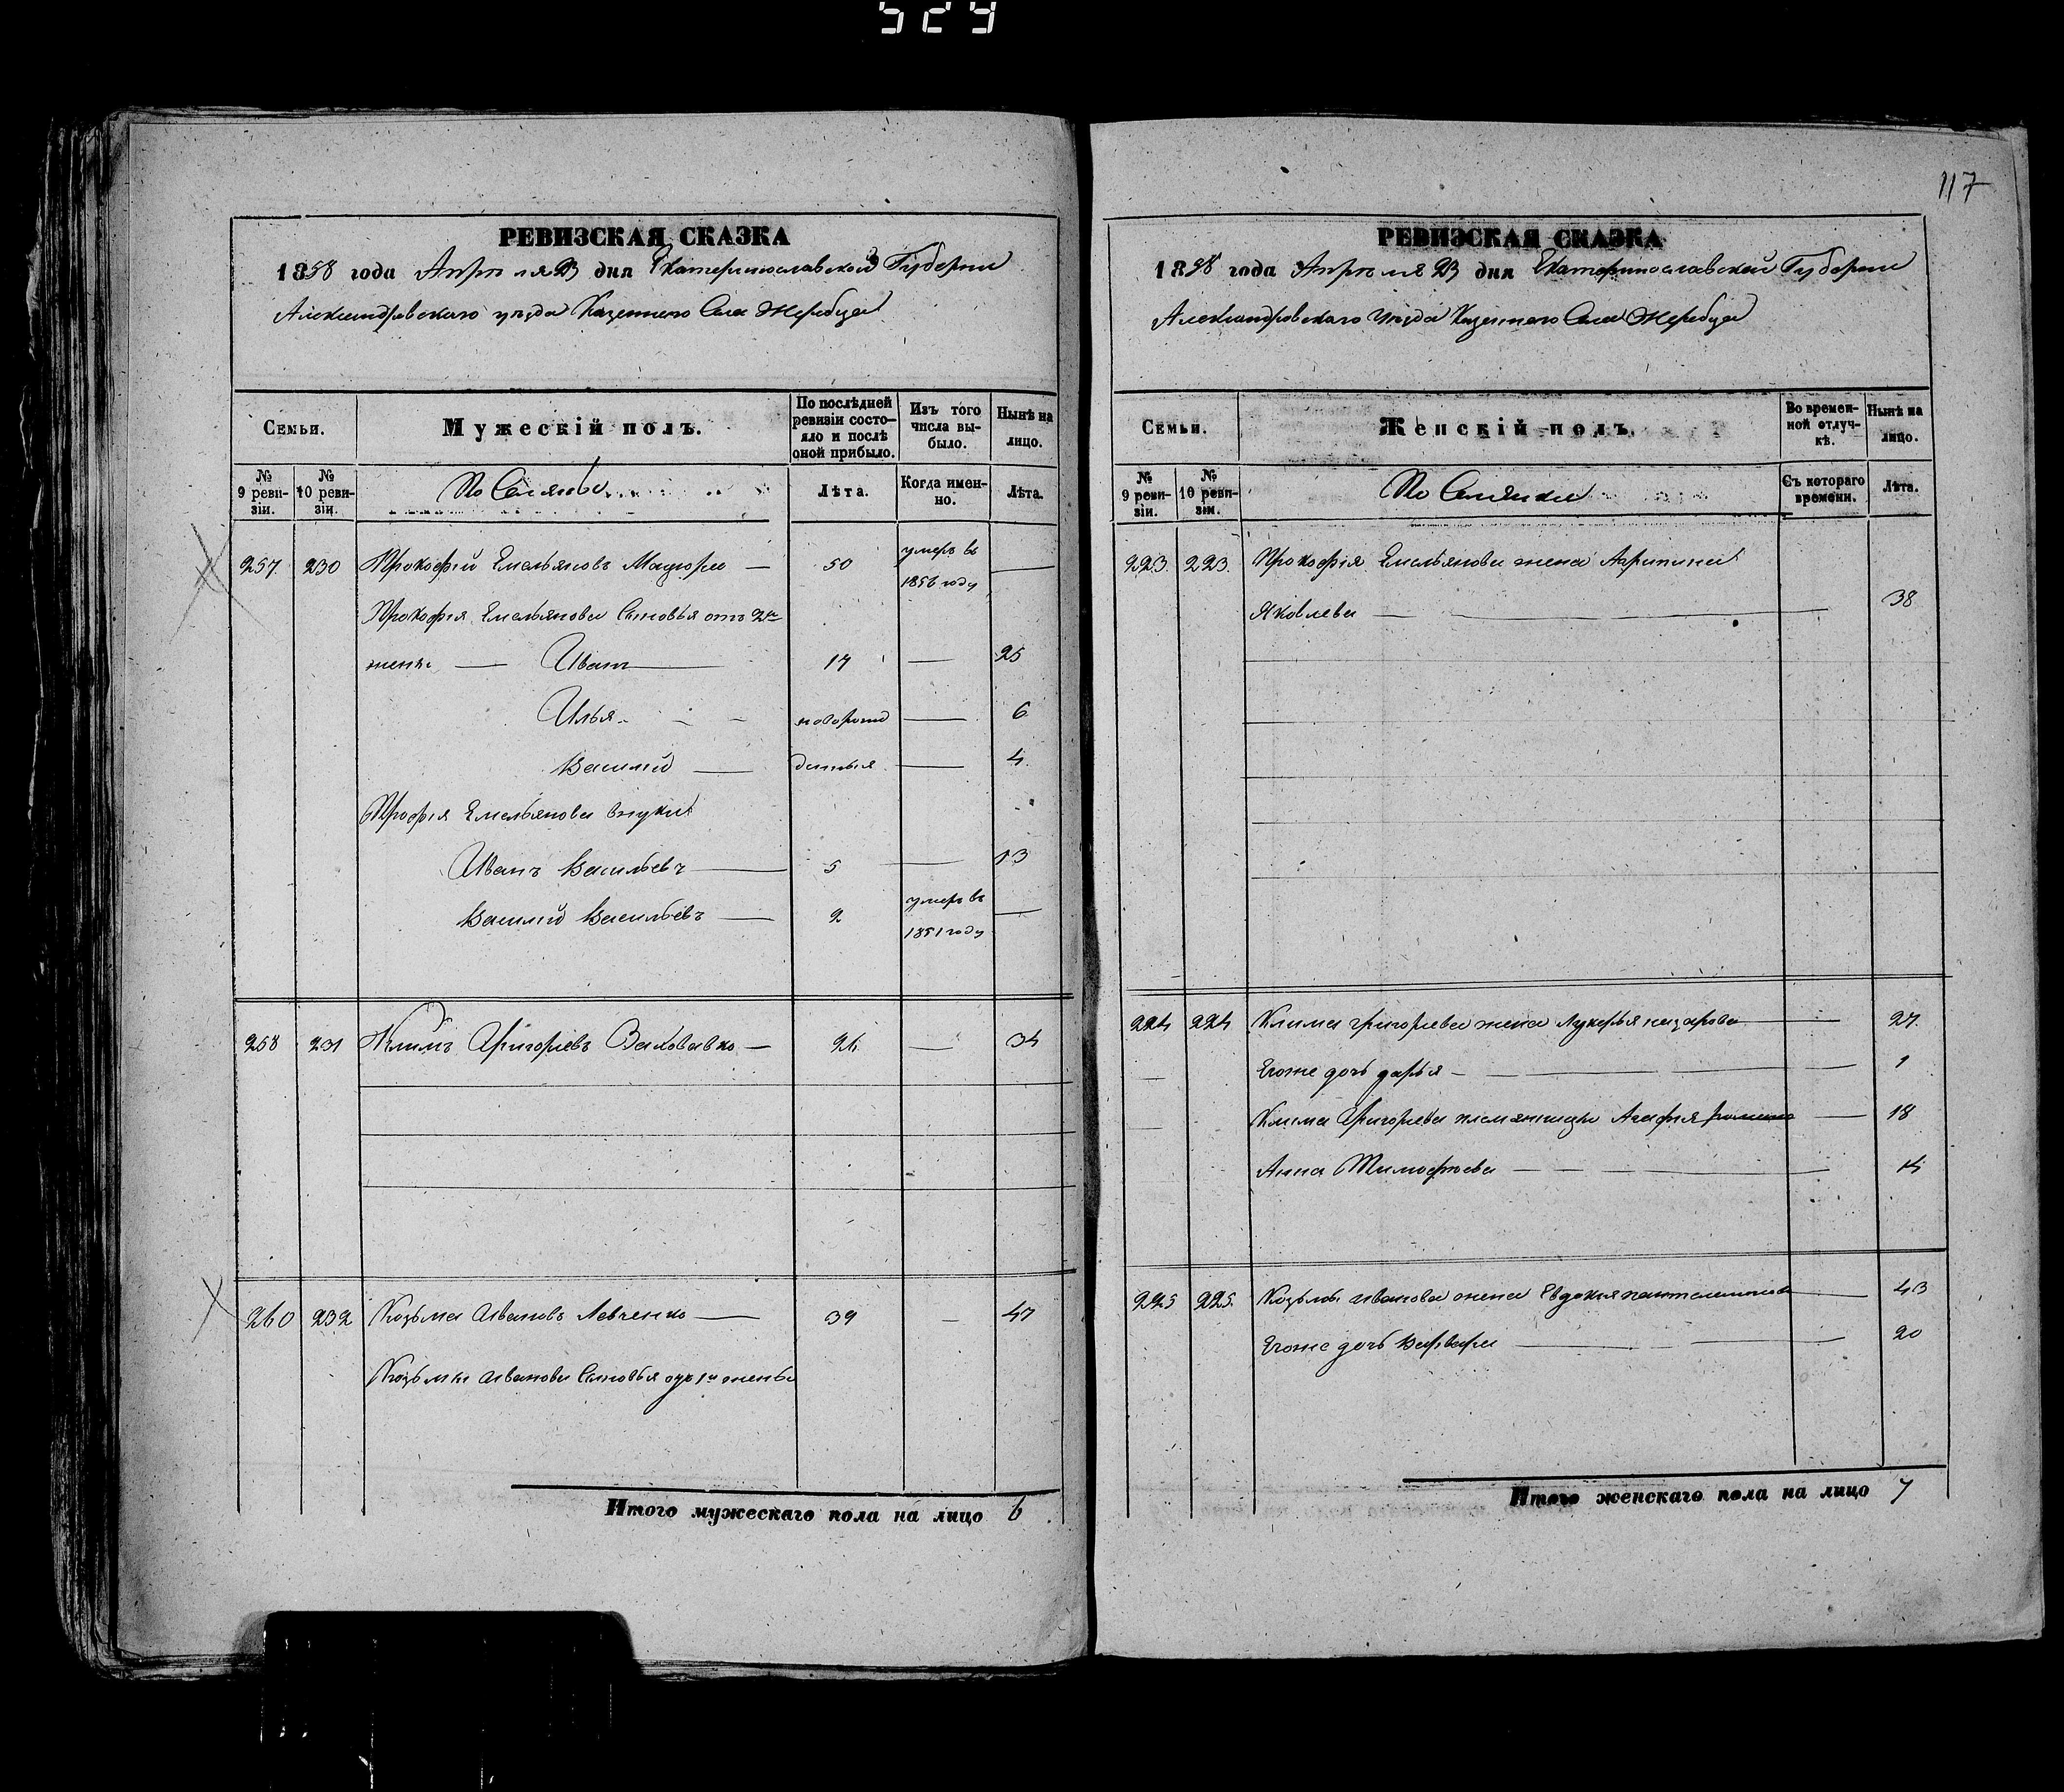 529
117
РЕВИЗСКАЯ СКАЗКА
1858 года Апреля 23 дня Екатеринославской Губернии
Александровскаго уезда Казеннаго Села Жеребца
Семьи.
Мужескій полъ.
По послѣдней ревизіи состояло и послѣ оной прибыло.
Изъ того числа выбыло.
Нынѣ на лицо.
№ 9 ревизіи.
№ 10 ревизіи.
Поселяне
Лѣта.
Когда именно.
Лѣта.
257. 230 Прокофій Емельяновъ Мацюра — 50 умеръ въ 1856 году —
Прокофія Емельянова Сыновья отъ 2й
жены — Иванъ — 17 — 25
Илья - - - новорожд — 6
Василий — денныя — 4.
Профія Емельянова внуки
Иванъ Васильевъ — 5 — 13
Василий Васильевъ — 2 умеръ въ 1851 году —
258 231 Климъ Григорьевъ — 26 — 34
260 232 Козьма Ивановъ Левченко — 39 — 47
Козьмы Иванова Сыновья отъ 1й жены
Итого мужескаго пола на лицо 6
РЕВИЗСКАЯ СКАЗКА
1858 года Апреля 23 дня Екатеринославской Губернии
Александровскаго Уезда Казеннаго Села Жеребца
Семьи.
Женскій полъ.
Во временной отлучкѣ.
Нынѣ на лицо.
№ 9 ревизіи.
№ 10 ревизіи.
Поселянки
Съ котораго времени.
Лѣта.
223. 223. Прокофія Емельянова жена Агрипина
Яковлева — 38
224 224 Клима Григорьева жена Лукерья Назарова — 27.
Егоже дочь Дарья — 1
Клима Григорьева племянницы Агафия — 18
Анна Тимофеева — 14
225 225. Козьмы Иванова жена Евдокия Пантелимонова — 43
Егоже дочь Варвара — 20
Итого женскаго пола на лицо 7